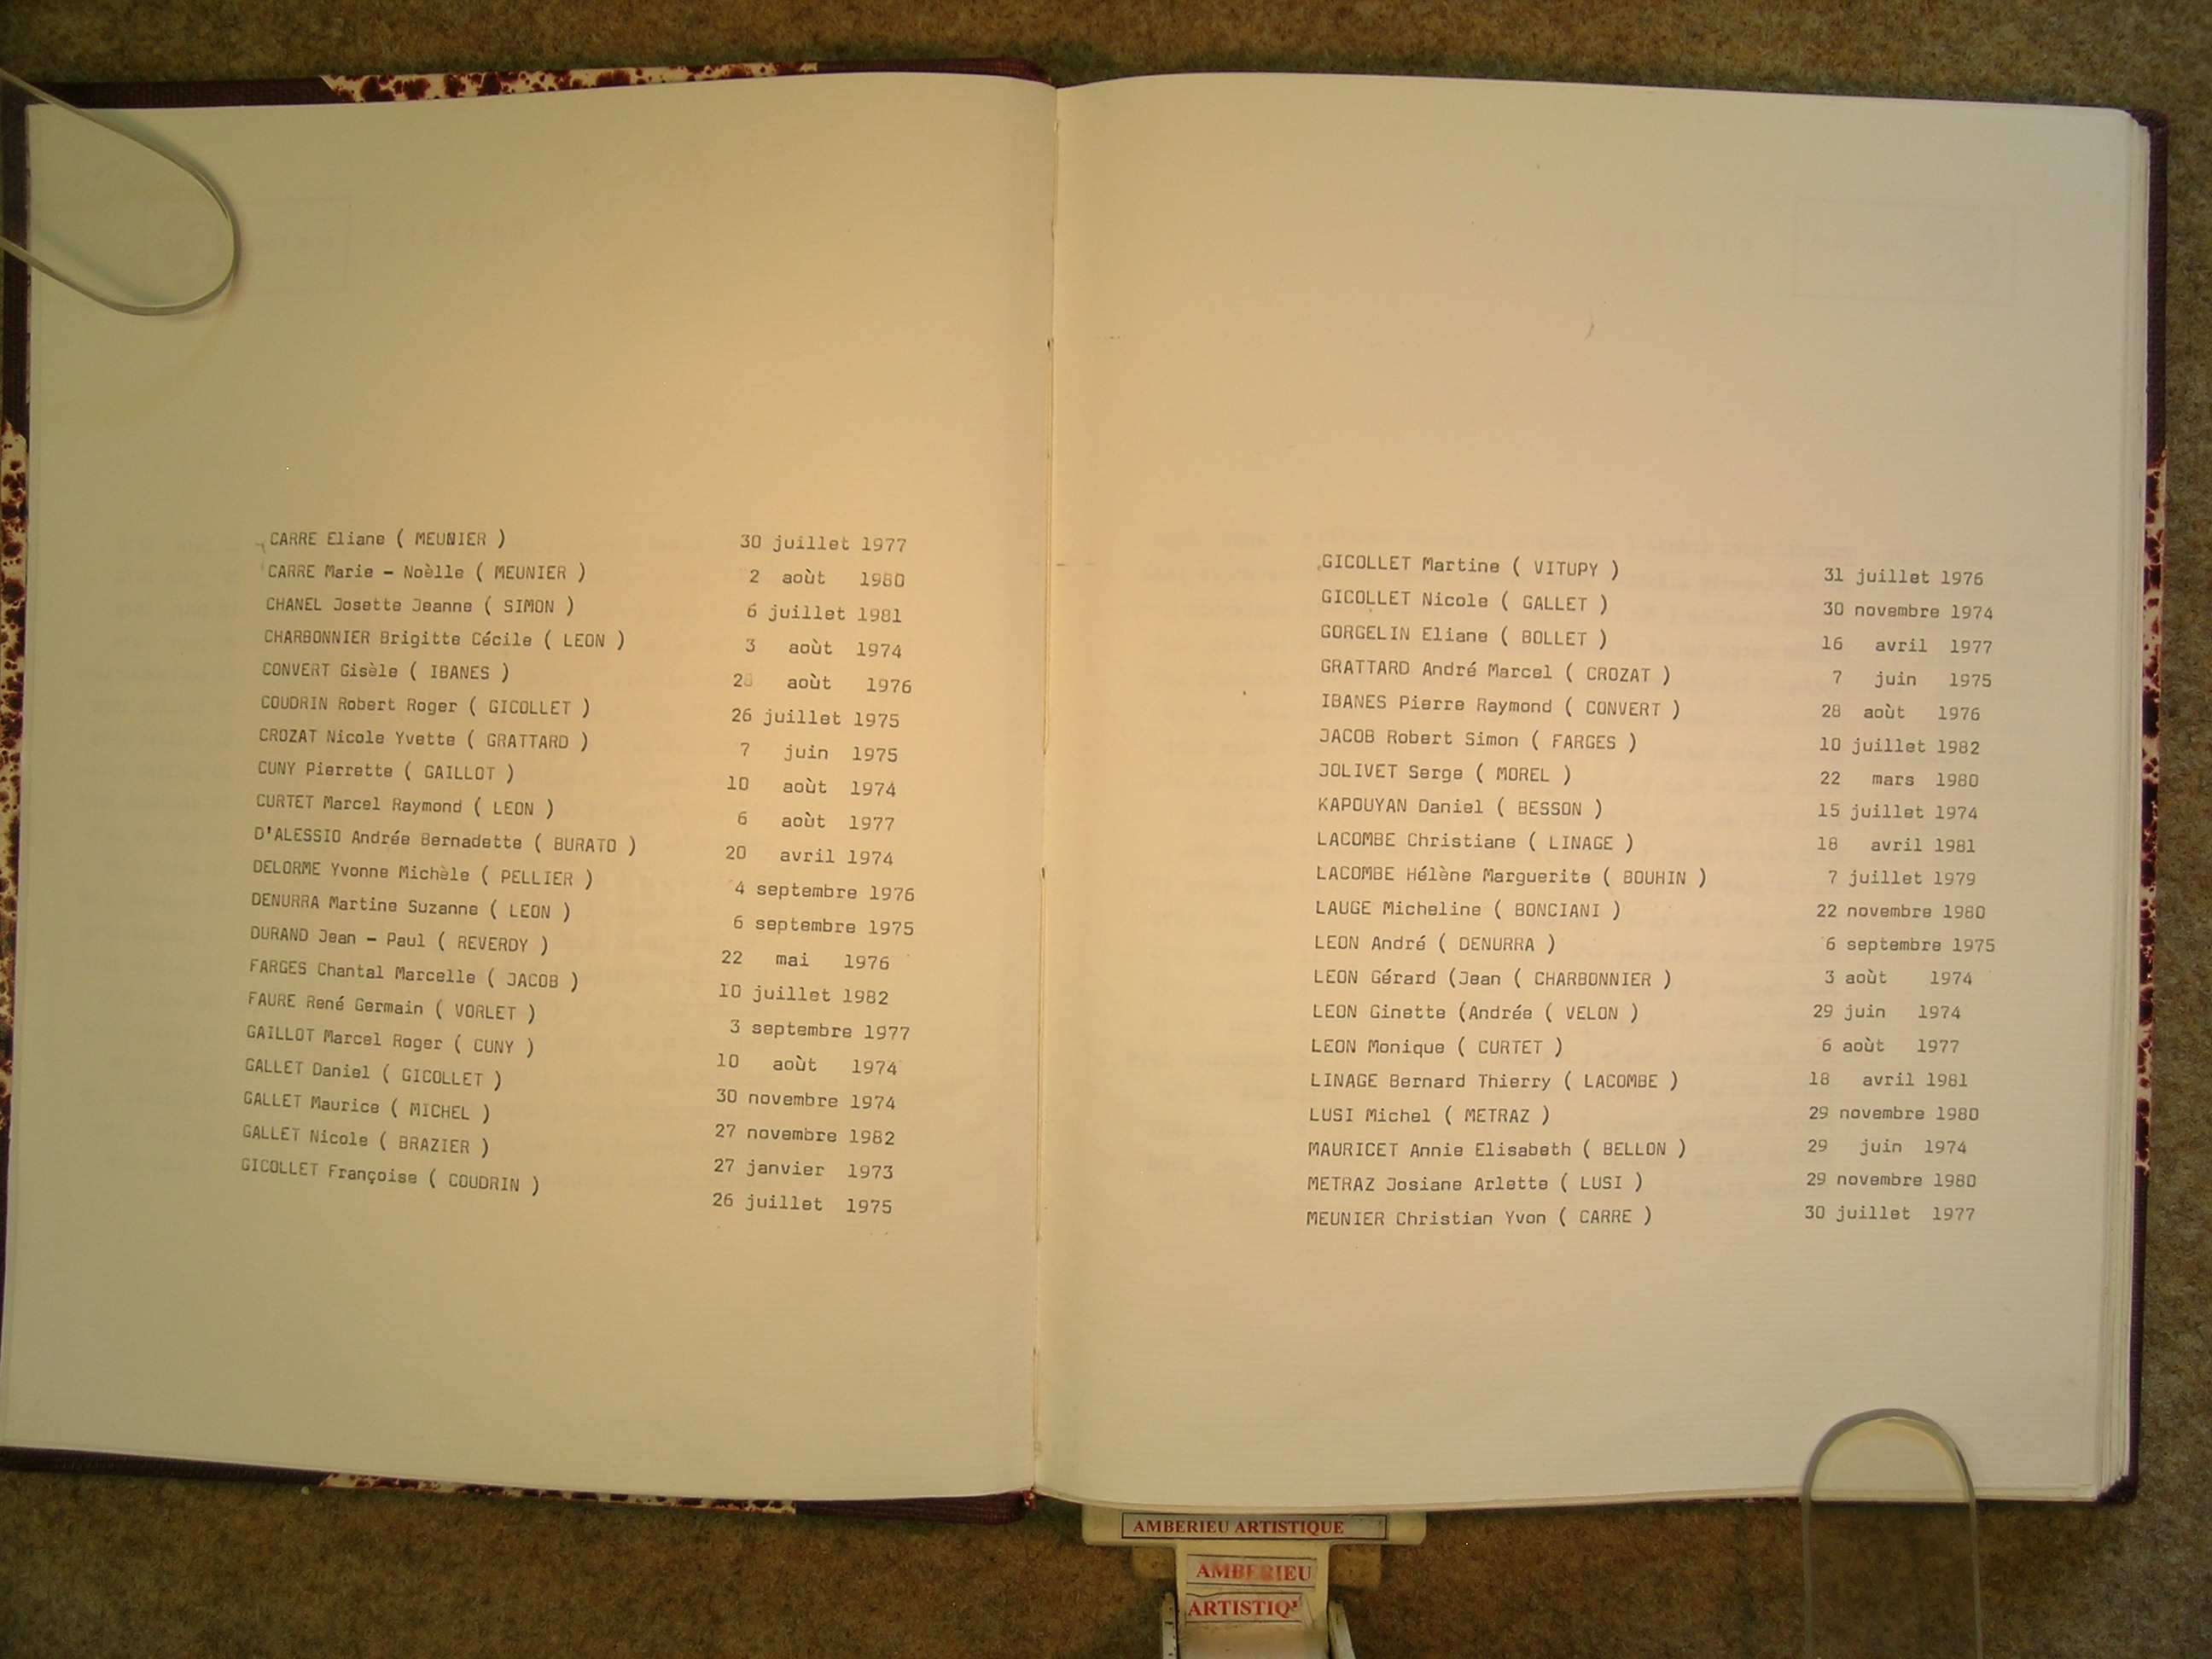 CARRE Eliane ( MEUNIER ) 30 juillet 1977
CARRE Marie - Noèlle ( MEUNIER ) 2 aoùt 1980
CHANEL Josette Jeanne ( SIMON ) 6 juillet 1981
CHARBONNIER Brigitte Cécile ( LEON ) 3 aoùt 1974
CONVERT Gisèle ( IBANES ) 28 aoùt 1976
COUDRIN Robert Roger ( GICOLLET ) 26 juillet 1975
CROZAT Nicole Yvette ( GRATTARD ) 7 juin 1975
CUNY Pierrette ( GAILLOT ) 10 aoùt 1974
CURTET Marcel Raymond ( LEON ) 6 aoùt 1977
D'ALESSIO Andrée Bernadette ( BURATO ) 20 avril 1974
DELORME Yvonne Michèle ( PELLIER ) 4 septembre 1976
DENURRA Martine Suzanne ( LEON ) 6 septembre 1975
DURAND Jean - Paul ( REVERDY ) 22 mai 1976
FARGES Chantal Marcelle ( JACOB ) 10 juillet 1982
FAURE René Germain ( VORLET ) 3 septembre 1977
GAILLOT Marcel Roger ( CUNY ) 10 aoùt 1974
GALLET Daniel ( GICOLLET ) 30 novembre 1974
GALLET Maurice ( MICHEL ) 27 novembre 1982
GALLET Nicole ( BRAZIER ) 27 janvier 1973
GICOLLET Françoise ( COUDRIN ) 26 juillet 1975
GICOLLET Martine ( VITUPY ) 31 juillet 1976
GICOLLET Nicole ( GALLET ) 30 novembre 1974
GORGELIN Eliane ( BOLLET ) 16 avril 1977
GRATTARD André Marcel ( CROZAT ) 7 juin 1975
IBANES Pierre Raymond ( CONVERT ) 28 aoùt 1976
JACOB Robert Simon ( FARGES ) 10 juillet 1982
JOLIVET Serge ( MOREL ) 22 mars 1980
KAPOUYAN Daniel ( BESSON ) 15 juillet 1974
LACOMBE Christiane ( LINAGE ) 18 avril 1981
LACOMBE Hélène Marguerite ( BOUHIN ) 7 juillet 1979
LAUGE Micheline ( BONCIANI ) 22 novembre 1980
LEON André ( DENURRA ) 6 septembre 1975
LEON Gérard (Jean ( CHARBONNIER ) 3 aoùt 1974
LEON Ginette (Andrée ( VELON ) 29 juin 1974
LEON Monique ( CURTET ) 6 aoùt 1977
LINAGE Bernard Thierry ( LACOMBE ) 18 avril 1981
LUSI Michel ( METRAZ ) 29 novembre 1980
MAURICET Annie Elisabeth ( BELLON ) 29 juin 1974
METRAZ Josiane Arlette ( LUSI ) 29 novembre 1980
MEUNIER Christian Yvon ( CARRE ) 30 juillet 1977
AMBERIEU ARTISTIQUE
AMBERIEU
ARTISTIQ